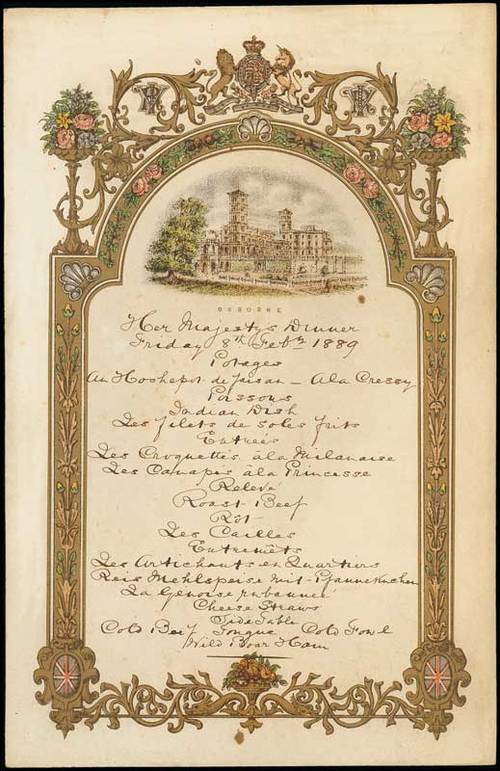 OSBORNE
Her Majesty's Dinner
Friday 8th Feby 1889
Potages
Au Hochepot de faisan — A la Cressy
Poissons
Indian Dish
Les filets de soles frits
Entrées
Les Croquettes à la Milanaise
Les Canapes à la Princesse
Relevé
Roast Beef
Rôt
Les Cailles
Entremêts
Les Artichauts en Quartiers
Reis Mehlspeise mit Pfannekuchen
La Génoise rubannée
Cheese Straws
Side Table
Cold Beef Tongue Cold Fowl
Wild Boar Ham